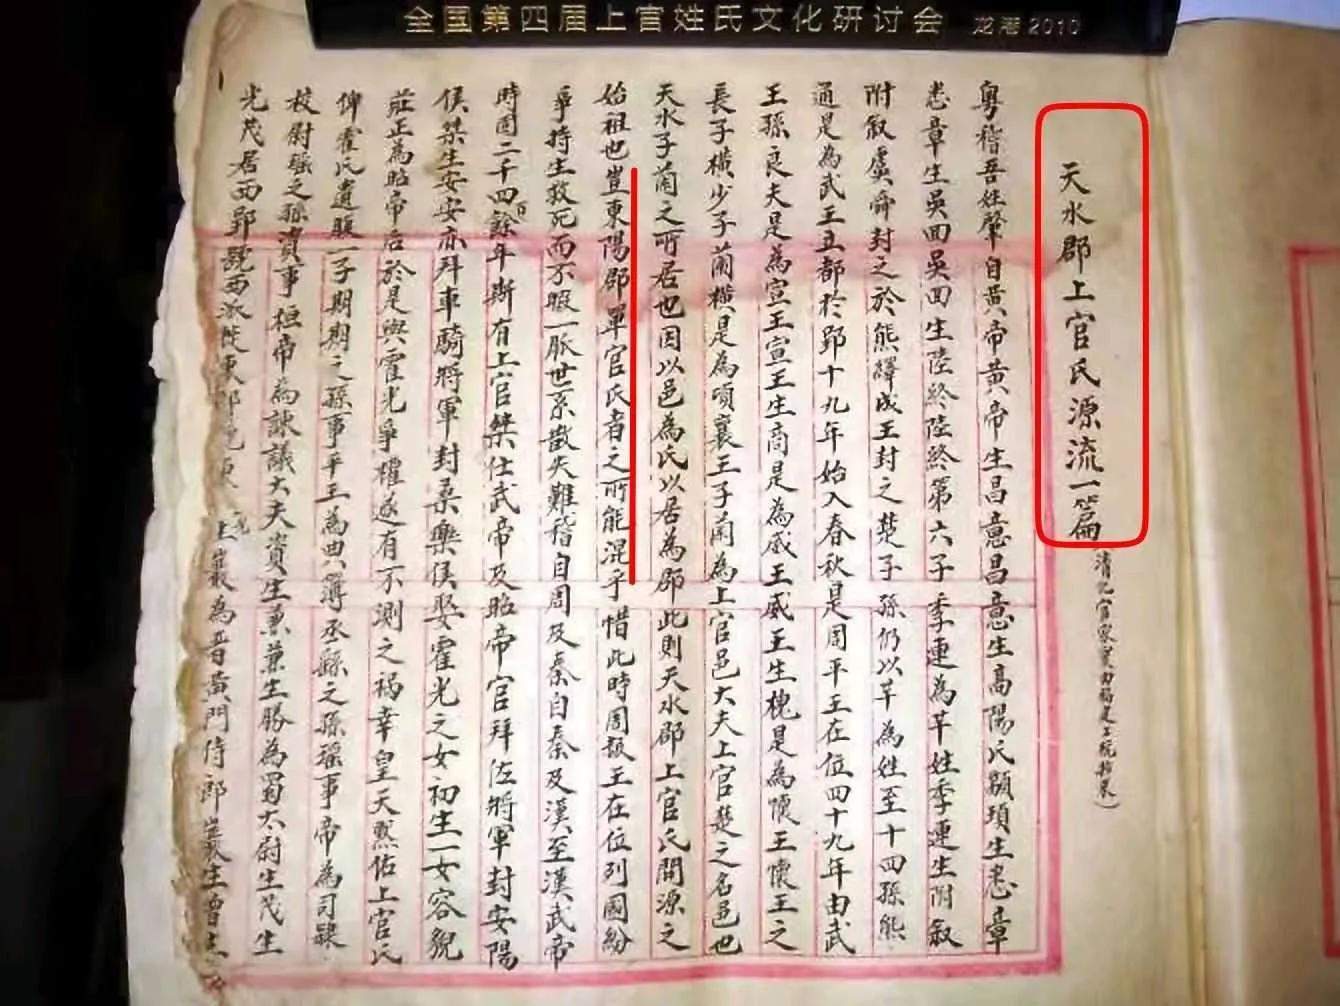 全国第四届上官姓氏文化研讨会 龙港2010
天水郡上官氏源流一篇
粵稽吾姓肇自黃帝黃帝生昌意昌意生高陽氏顓頊生悳章
悳章生吳回吳回生陸終陸終第六子季連為芉姓季連生附叙
附叙虞舜封之於熊繹成王封之楚子孫仍以芉為姓至十四孫熊
通是為武王立都於郢十九年始入春秋是周平王在位四十九年由武
王孫良夫是為宣王宣王生商是為威王威王生槐是為懷王懷王之
長子橫少子蘭橫是為頃襄王子蘭為上官邑大夫上官楚之名邑也
天水子蘭之所居也因以邑為氏以居為郡此則天水郡上官氏開源之
始祖也豈東陽郡單官氏者之所能混乎惜此時周赧王在位列國紛
爭持生救死而不暇一脈世系散失難稽自周及秦自秦及漢至漢武帝
時週二千四百餘年斯有上官桀仕武帝及昭帝官拜佐將軍封安陽
侯桀生安安亦拜車騎將軍封桑樂侯娶霍光之女初生一女容貌
莊正為昭帝后於是與霍光爭權遂有不測之禍幸皇天默佑上官氏
俾霍氏遺腹一子期期之孫事平王為典簿丞縣之孫瑤事帝為司隸
校尉瑤之孫資事桓帝為諫議大夫資生兼兼生勝為蜀太尉生茂生
光茂居西郢號西派徙東 為晉黃門侍郎 生曾